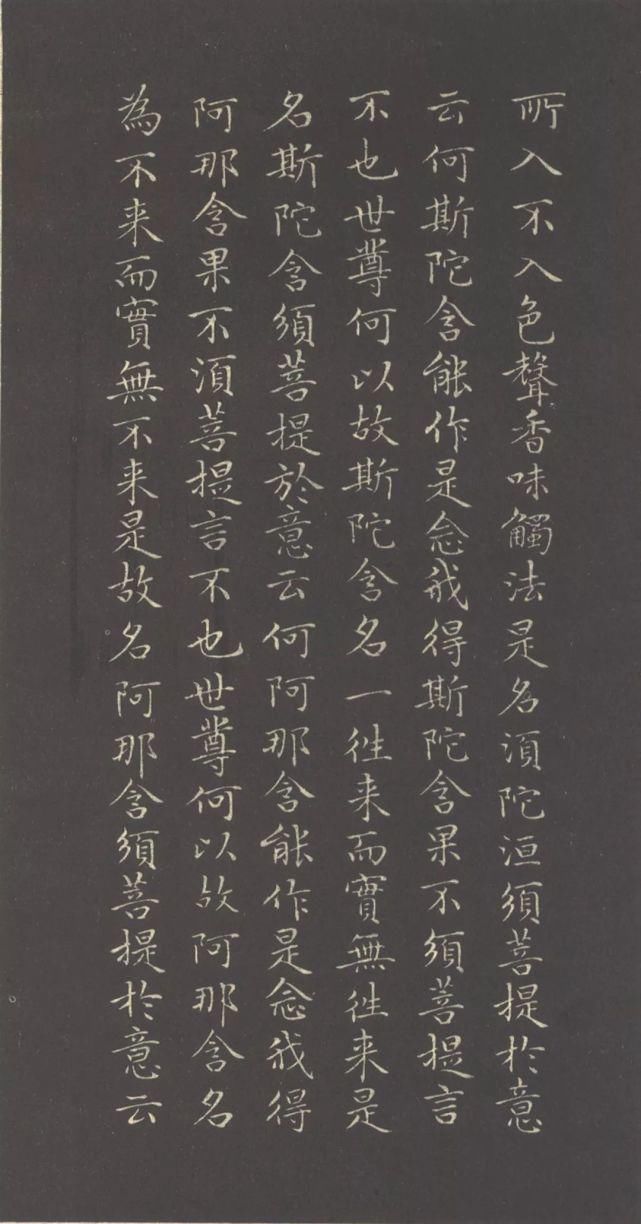 所入不入色聲香味觸法是名須陀洹須菩提於意
云何斯陀含能作是念我得斯陀含果不須菩提言
不也世尊何以故斯陀含名一徃来而實無徃来是
名斯陀含須菩提於意云何阿那含能作是念我得
阿那含果不須菩提言不也世尊何以故阿那含名
為不来而實無不来是故名阿那含須菩提於意云